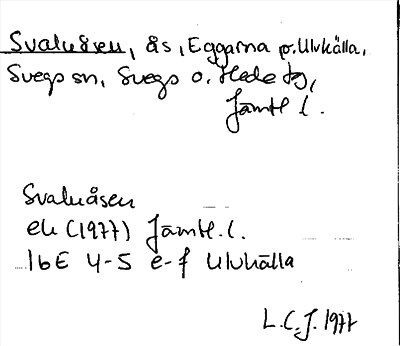 Svaluåsen, ås, Eggarna o. Ulvkälla,
Svegs sn, Svegs o. Hede tg,
Jämtl l.
Svaluåsen
ek (1977) Jämtl. l.
16E 4-5 e-f Ulvkälla
L.C.J. 1977